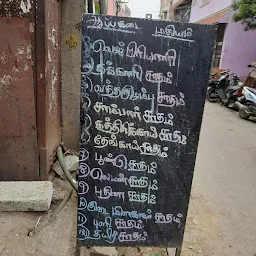 ஆப்பக்கடை மதியம்
1) வெஜ் பிரியாணி
2) தக்காளி சாதம்
3) வத்தகுழம்பு சாதம்
4) சாம்பார் சாதம்
5) கத்திரிக்காய் சாதம்
6) தேங்காய் சாதம்
7) பூண்டு சாதம்
8) லெமன் சாதம்
9) புதினா சாதம்
10) குடை மிளகாய் சாதம்
11) புளி சாதம்
12) தயிர் சாதம்